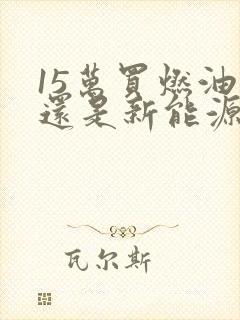 15萬買燃油
還是新能源
瓦尔斯